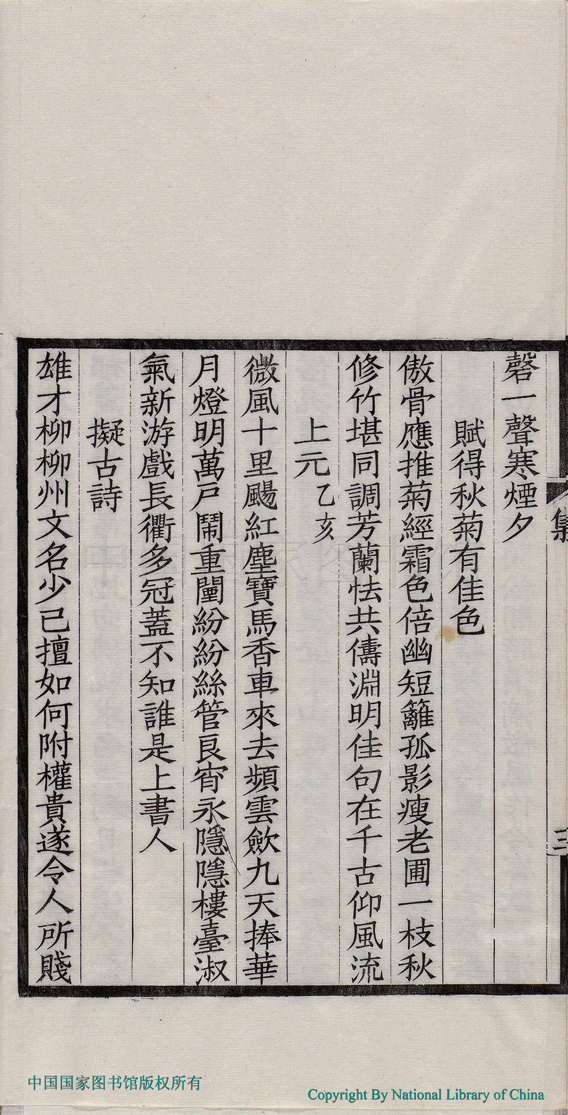 磬一聲寒煙夕
賦得秋菊有佳色
傲骨應推菊經霜色倍幽短籬孤影瘦老圃一枝秋
修竹堪同調芳蘭怯共儔淵明佳句在千古仰風流
上元乙亥
微風十里颺紅塵寶馬香車來去頻雲歛九天捧華
月燈明萬戸鬧重闉紛紛絲管良宵永隱隱樓臺淑
氣新游戲長衢多冠蓋不知誰是上書人
擬古詩
雄才柳柳州文名少已擅如何附權貴遂令人所賤
集
三
中国国家图书馆版权所有
Copyright By National Library of China